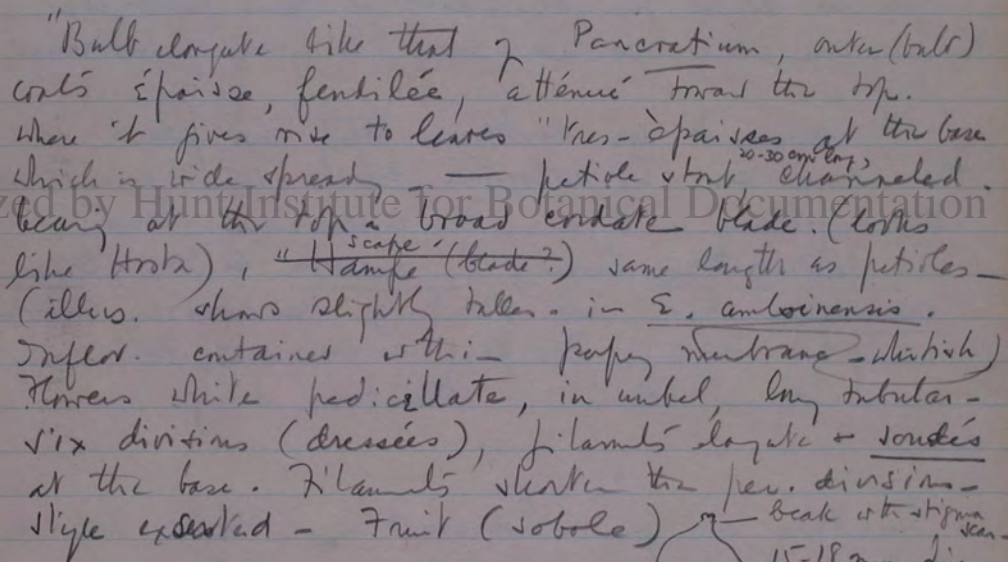 "Bulb elongate like that of Pancratium, outer (bulb)
coats épaisse, fendilée, atténué toward the top.
where it gives rise to leaves "très-èpaisses at the base
which is wide spread — petiole stout, 20-30 cm long, channeled.
zed by Hunt Institute for Botanical Documentation
bearing at the top a broad cordate blade. (looks
like Hosta), "Hampe (blade?) scape same length as petioles—
(illus. shows slightly taller - in E. amboinensis.
Inflor. contained within papery membrane - whitish)
Flowers white pedicellate, in umbel, long tubular-
six divisions (dressées), filaments elongate + soudés
at the base. Filaments shorter than per. divisions-
style exserted - Fruit (sobole) — beak with stigma
scar-
15-18 mm